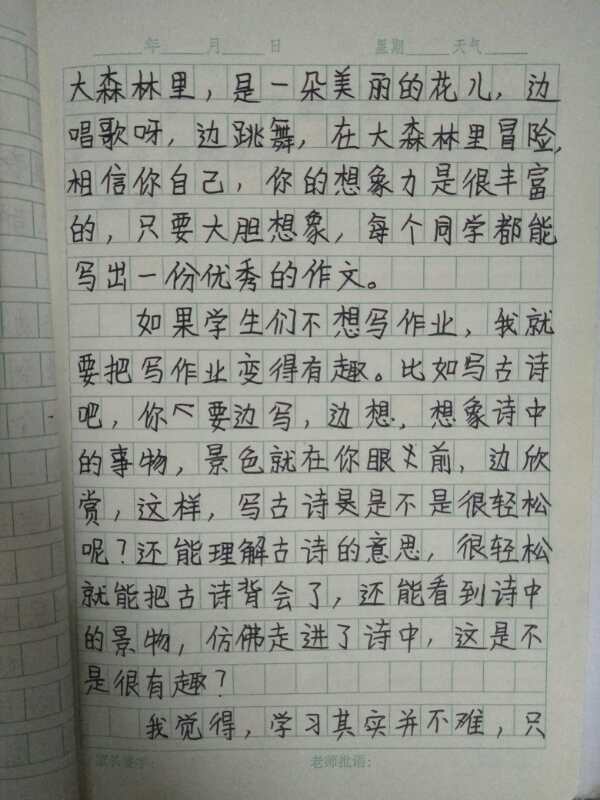 年 月 日 星期 天气
大森林里，是一朵美丽的花儿，边
唱歌呀，边跳舞，在大森林里冒险，
相信你自己，你的想象力是很丰富
的，只要大胆想象，每个同学都能
写出一份优秀的作文。
如果学生们不想写作业，我就
要把写作业变得有趣。比如写古诗
吧，你要边写，边想，想象诗中
的事物，景色就在你眼前，边欣
赏，这样，写古诗是不是很轻松
呢？还能理解古诗的意思，很轻松
就能把古诗背会了，还能看到诗中
的景物，仿佛走进了诗中，这是不
是很有趣？
我觉得，学习其实并不难，只
家长签字： 老师批语：